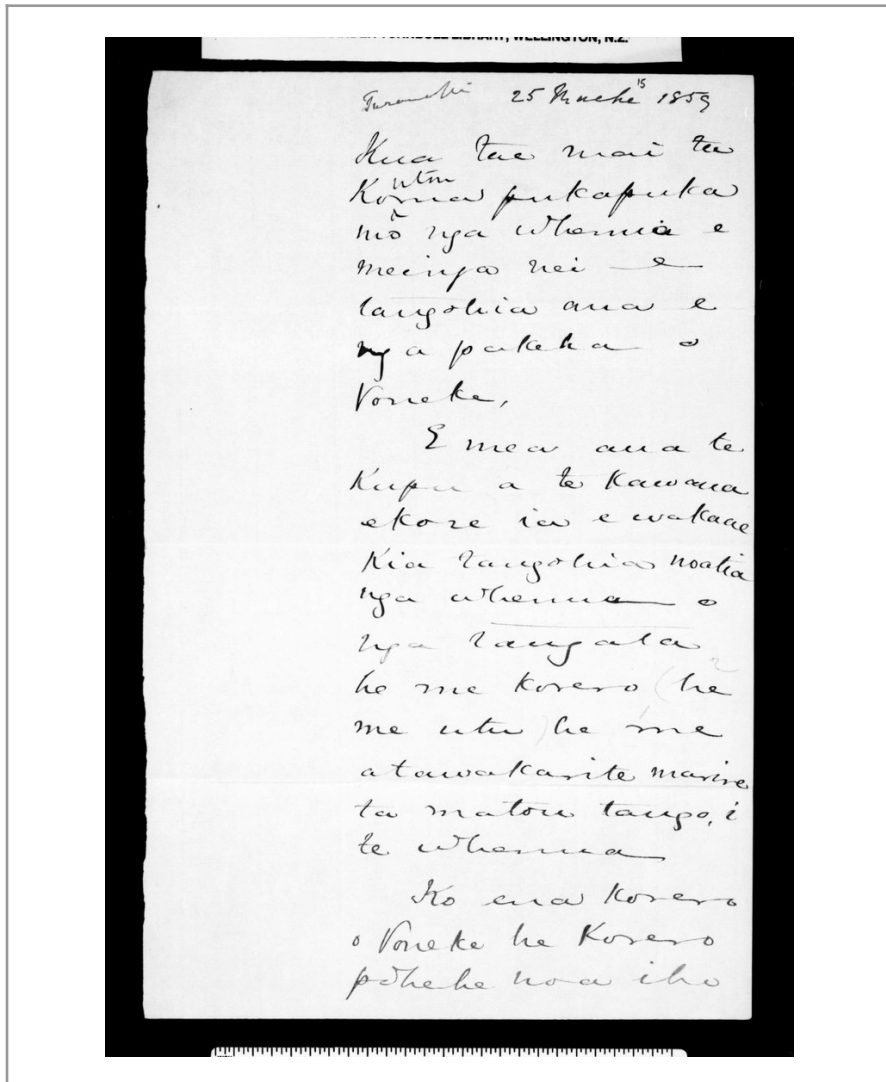 LIBRARY, WELLINGTON, N.Z.
Taranaki 25 Maehe 15 1859
Kua tae mai ta
utou
Korua pukapuka
mō nga whenua e
meinga nei e
tangohia ana e
nga pakeha o
Poneke,
E mea ana te
Kupu a te Kawana
ekore ia e wakaae
Kia tangohia noatia
nga whenua o
nga tangata
he me korero (he
me utu) he me
atawakarite marire
ta matou tango, i
te whenua
Ko ena Korero
o Poneke he Korero
pohehe noa iho